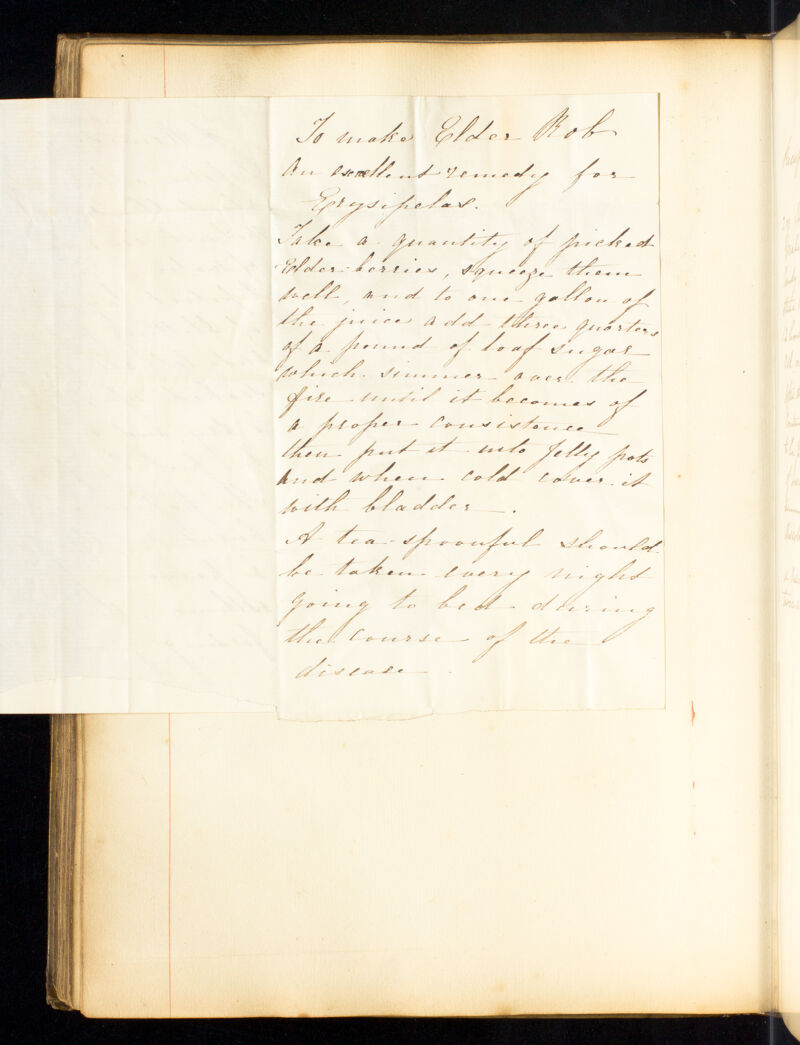 To make Elder Rob
an excellent remedy for
Erysipelas.
Take a quantity of picked
Elder-berries, squeeze them
well, and to one gallon of
the juice add three quarters
of a pound of loaf sugar
which simmer over the
fire until it becomes of
a proper consistence
then put it into Jelly pots
and when cold cover it
with bladder.
A tea-spoonful should
be taken every night
going to bed during
the course of the
disease.